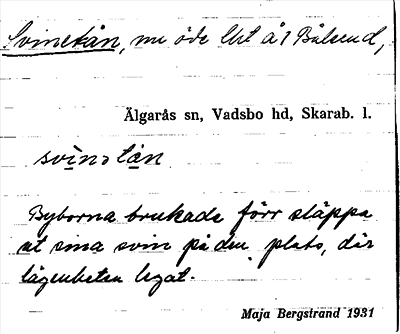 Svinetån, nu öde lht å 1 Bålerud,
Älgarås sn, Vadsbo hd, Skarab. l.
svinetån
Byborna brukade förr släppa
ut sina svin på den plats, där
lägenheten legat.
Maja Bergstrand 1931